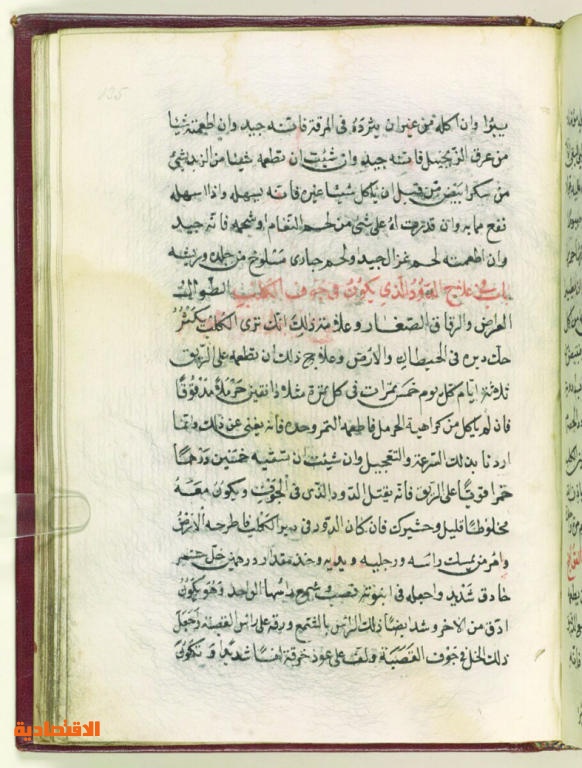 135
يبرا وان اكله من غير ان يثرده فى المرقة فانه جيد وان اطعمته شيا
من عرق الزنجبيل فانه جيد وان شئت ان تطعمه شيئا من الزبد شئ
من سكر ابيض من قبل ان ياكل شيئا غيره فانه يسهله واذا اسهله
نفع مما به وان قدرت له على شئ من لحم النعام او شحمه فانه جيد
وان اطعمته لحم غزال جيد ولحم جبارى مسلوخ من جلده وريشه
باب فى علاج الدود الذى يكون فى جوف الكلب الطوال
العراض والرقاق الصغار وعلامة ذلك انك ترى الكلب يكثر
حك دبره فى الحيطان والارض وعلاج ذلك ان تطعمه على الريق
ثلاثة ايام كل يوم خمس تمرات فى كل تمرة مثلا دانقين حرملا مدقوقا
فان لم ياكل من كراهية الحرمل فاطعمه التمر وحده فانه يغنى عن ذلك وانما
اردنا بذلك السرعة والتعجيل وان شئت ان تسقيه خمسين درهما
خمرا قويا على الريق فانه يقتل الدود الذى فى الجوف ويكون معه
مخلوطا قليل وحشيرك فان كان الدود فى دبر الكلب فاطرحه الارض
وامر من يمسك راسه ورجليه ويديه وخذ مقدار درهمين خل خمر
حاذق شديد واجعله فى انبوبة قصب وشمع راسها الواحد وهو يكون
ادق من الاخر وشد ايضا ذلك الراس بالشمع ورقه على راس القصبة واجعل
ذلك الخل فى جوف القصبة ولف على عود خرقة لفا شديدا وتكون
الاقتصادية